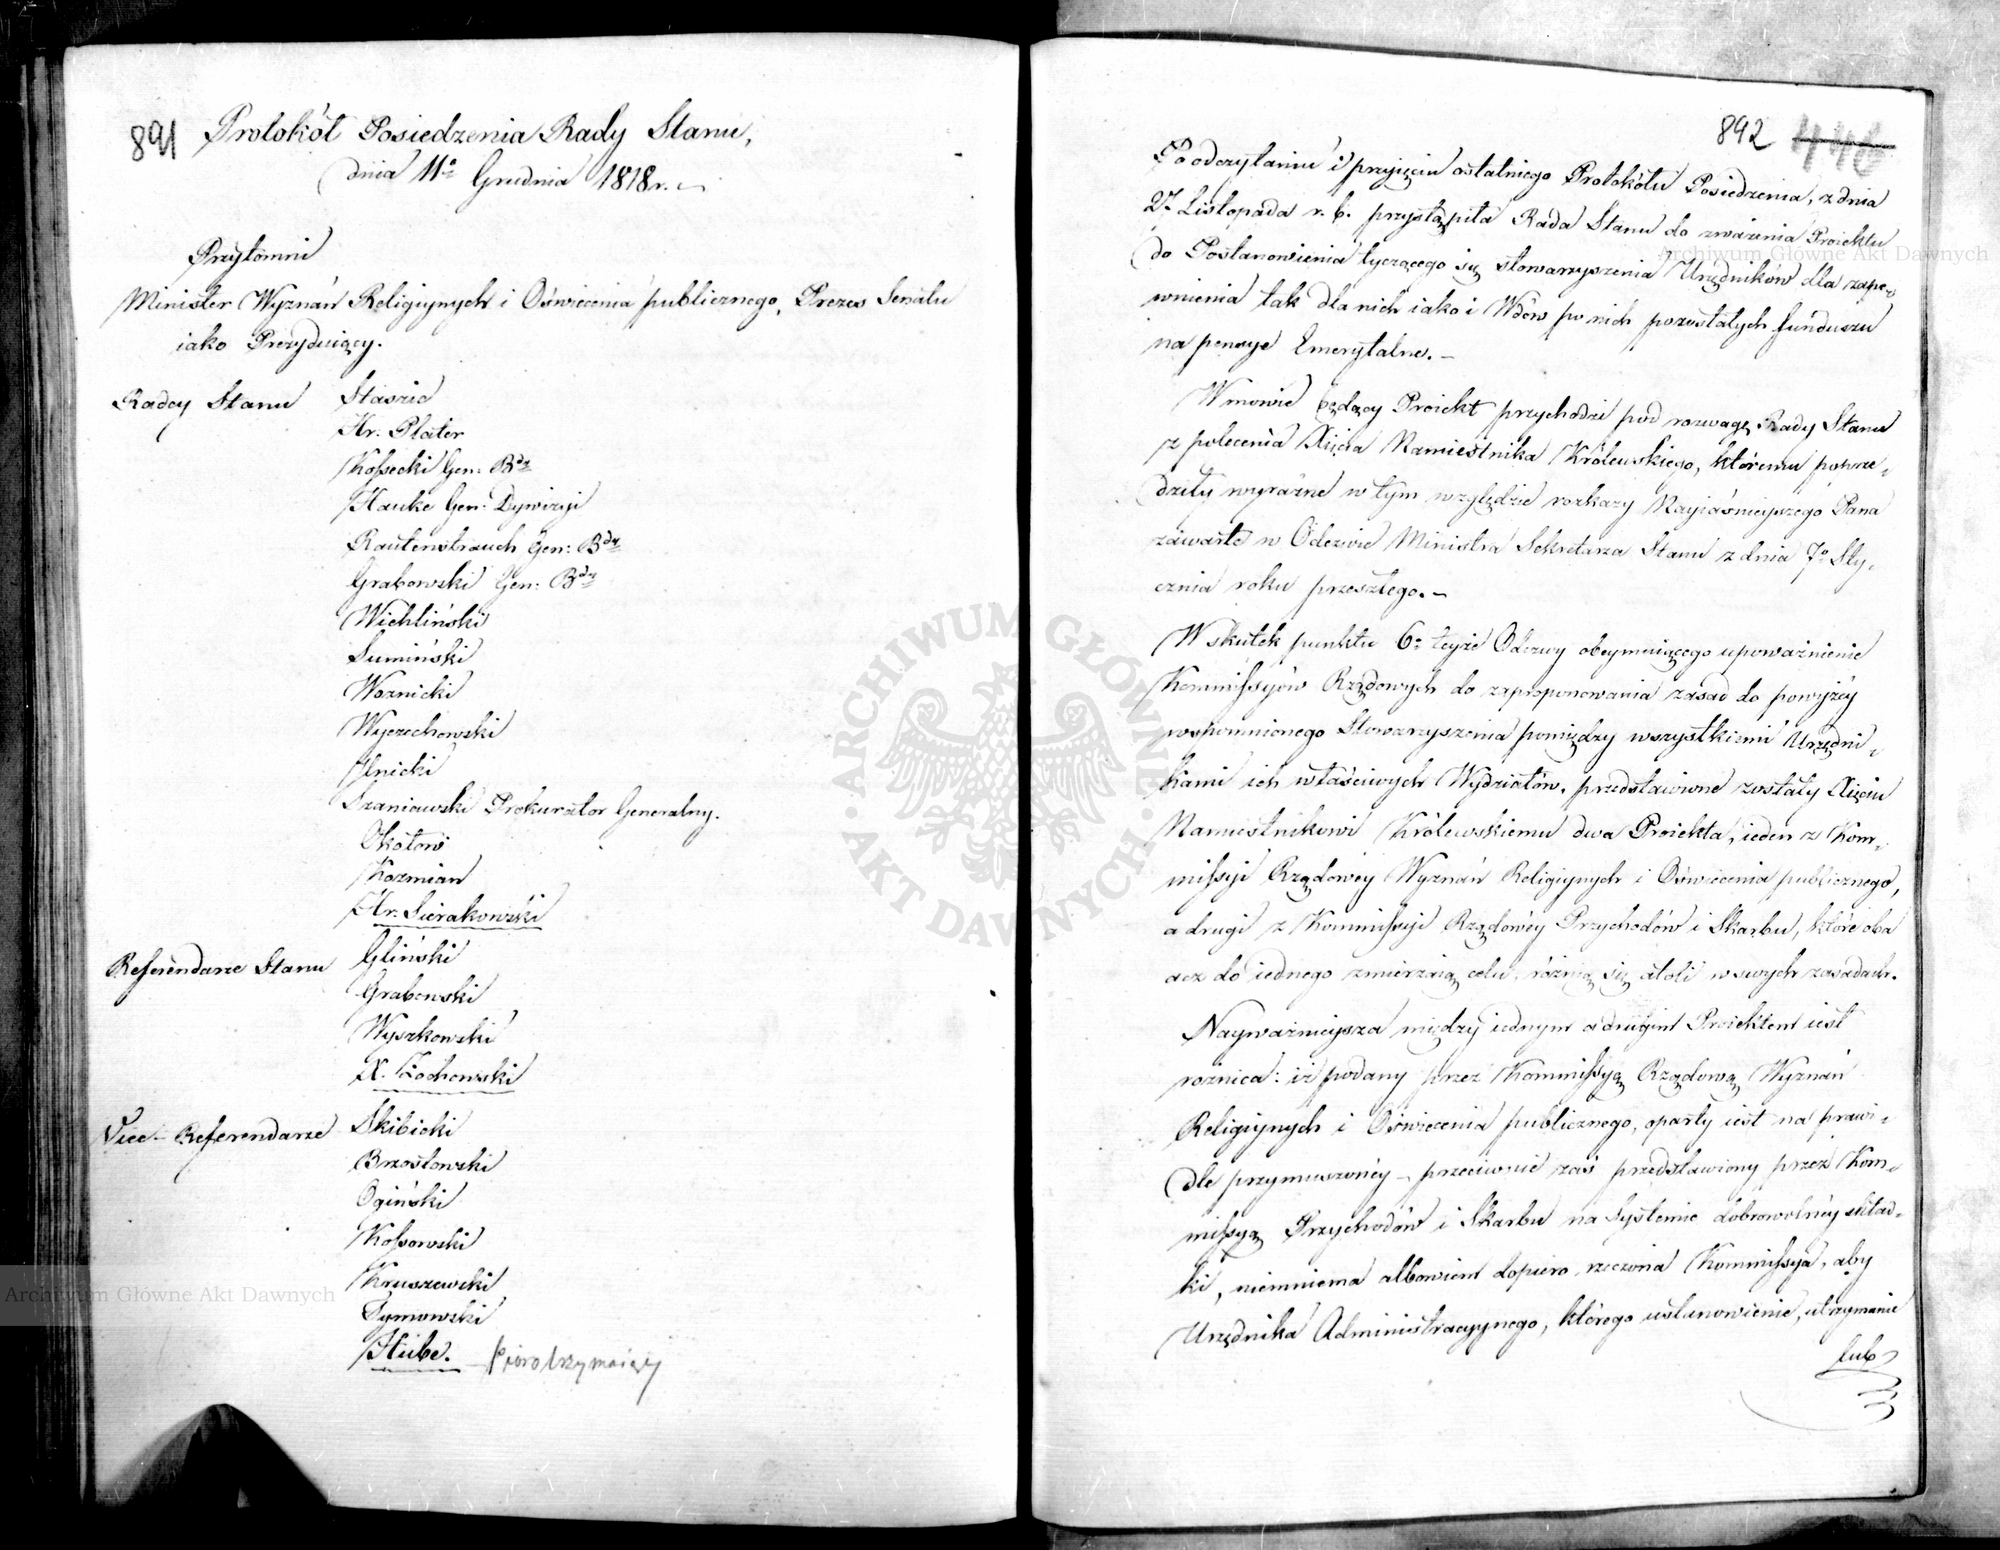 891
Protokół Posiedzenia Rady Stanu,
dnia 11° Grudnia 1818 r.
Przytomni
Minister Wyznań Religiynych i Oświecenia publicznego, Prezes Senatu
iako Prezyduiący.
Radcy Stanu Staszic
Hr. Plater
Kossecki Gen: Bdy
Hauke Gen: Dywizyi
Rautenstrauch Gen: Bdy
Grabowski Gen: Bdy
Wichliński
Sumiński
Woznicki
Wyczechowski
Ilnicki
Szaniawski Prokurator Generalny.
Okołow
Kozmian
Hr. Sierakowski
Referendarze Stanu Gliński
Grabowski
Wyszkowski
X. Żochowski
Vice-Referendarze Skibicki
Brzostowski
Ogiński
Kossowski
Kruszewski
Tymowski
Hube. - pioro trzymaiący
892 446
Po odczytaniu i przyięciu ostatniego Protokółu Posiedzenia, z dnia
27. Listopada r. b. przystąpiła Rada Stanu do zważenia Proiektu
do Postanowienia tyczącego się stowarzyszenia Urzędników dla zape-
wnienia tak dla nich iako i Wdów po nich pozostałych funduszu
na pensye Emerytalne. -
W mowie będący Proiekt przychodzi pod rozwagę Rady Stanu
z polecenia Xięcia Namiestnika Królewskiego, któremu poprze-
dziły wyraźne w tym względzie rozkazy Nayiaśnieyszego Pana
zawarte w Odezwie Ministra Sekretarza Stanu z dnia 7° Sty-
cznia roku przeszłego. -
W skutek punktu 6° teyże Odezwy obeymuiącego upoważnienie
Kommissyów Rządowych do zaproponowania zasad do powyżéy
wspomnionego Stowarzyszenia pomiędzy wszystkiemi Urzędni-
kami ich właściwych Wydziałów, przedstawione zostały Xięciu
Namiestnikowi Królewskiemu dwa Proiekta, ieden z Kom-
missyi Rządowéy Wyznań Religiynych i Oświecenia publicznego,
a drugi z Kommissyi Rządowéy Przychodów i Skarbu, które oba
acz do iednego zmierzaią celu, różnią się atoli w swych zasadach.
Nayważnieysza między iednym a drugim Proiektem iest
roznica: iż podany przez Kommissyą Rządową Wyznań
Religiynych i Oświecenia publicznego, oparty iest na prawi-
dle przymuszonéy - przeciwnie zaś przedstawiony przez Kom-
missyą Przychodów i Skarbu na Systemie dobrowolnéy skład-
ki, niemniema albowiem dopiero rzeczona Kommissya, aby
Urzędnika Administracyynego, którego ustanowienie, utrzymanie
lub
ARCHIWUM GŁÓWNE AKT DAWNYCH
Archiwum Główne Akt Dawnych
Archiwum Główne Akt Dawnych